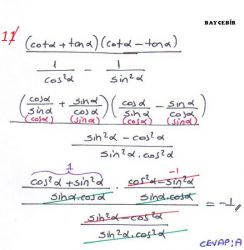 BAYCEBİR
11) (cotα + tanα)(cotα - tanα)
1/cos²α - 1/sin²α
(cosα/sinα + sinα/cosα)(cosα/sinα - sinα/cosα)
(cosα) (sinα) (cosα) (sinα)
sin²α - cos²α
sin²α . cos²α
1 -1
cos²α + sin²α/sinα.cosα . cos²α - sin²α/sinα.cosα = -1
sin²α - cos²α
sin²α . cos²α
CEVAP: A